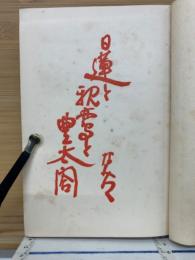 日蓮と
親鸞と
豊太閤